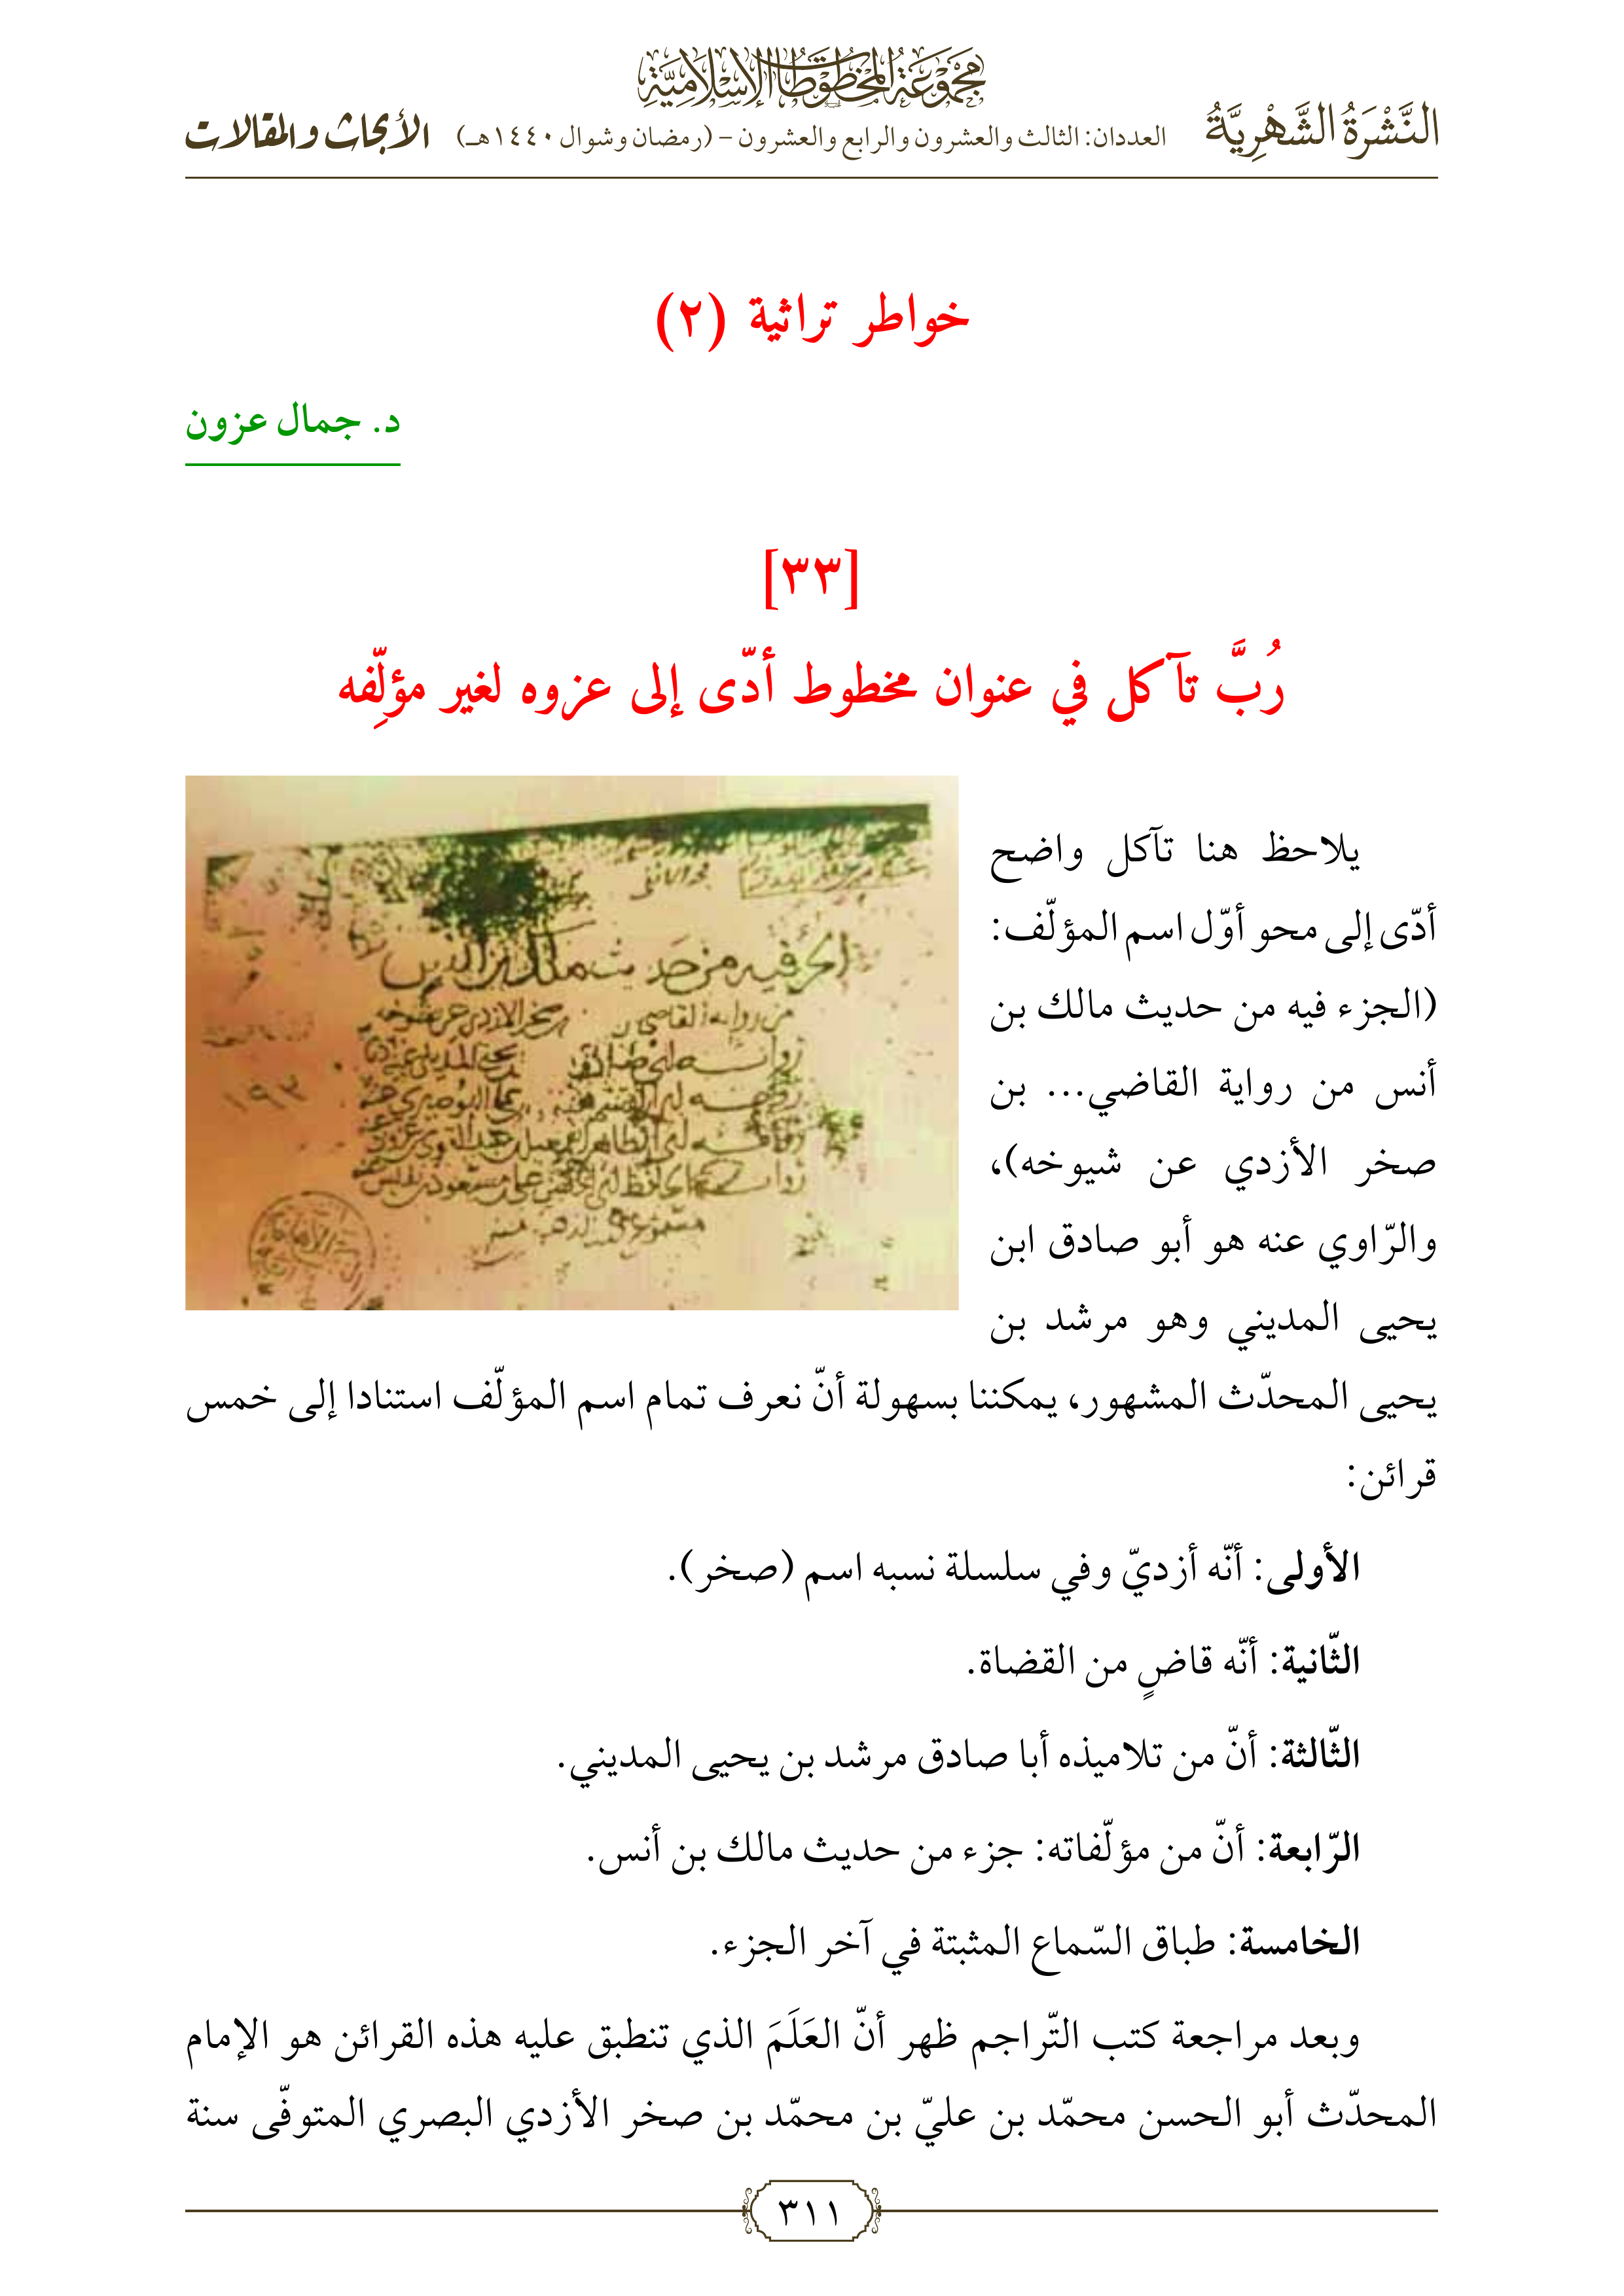 مجموعة المخطوطات الإسلامية
النَّشْرَةُ الشَّهْرِيَّةُ
العددان: الثالث والعشرون والرابع والعشرون – (رمضان وشوال ١٤٤٠هـ)
الأبحاث والمقالات
خواطر تراثية (٢)
د. جمال عزون
[٣٣]
رُبَّ تآكل في عنوان مخطوط أدّى إلى عزوه لغير مؤلِّفه
يلاحظ هنا تآكل واضح
أدّى إلى محو أوّل اسم المؤلّف:
(الجزء فيه من حديث مالك بن
أنس من رواية القاضي... بن
صخر الأزدي عن شيوخه)،
والرّاوي عنه هو أبو صادق ابن
يحيى المديني وهو مرشد بن
يحيى المحدّث المشهور، يمكننا بسهولة أنّ نعرف تمام اسم المؤلّف استنادا إلى خمس
قرائن:
الأولى: أنّه أزديّ وفي سلسلة نسبه اسم (صخر).
الثّانية: أنّه قاضٍ من القضاة.
الثّالثة: أنّ من تلاميذه أبا صادق مرشد بن يحيى المديني.
الرّابعة: أنّ من مؤلّفاته: جزء من حديث مالك بن أنس.
الخامسة: طباق السّماع المثبتة في آخر الجزء.
وبعد مراجعة كتب التّراجم ظهر أنّ العَلَمَ الذي تنطبق عليه هذه القرائن هو الإمام
المحدّث أبو الحسن محمّد بن عليّ بن محمّد بن صخر الأزدي البصري المتوفّى سنة
٣١١